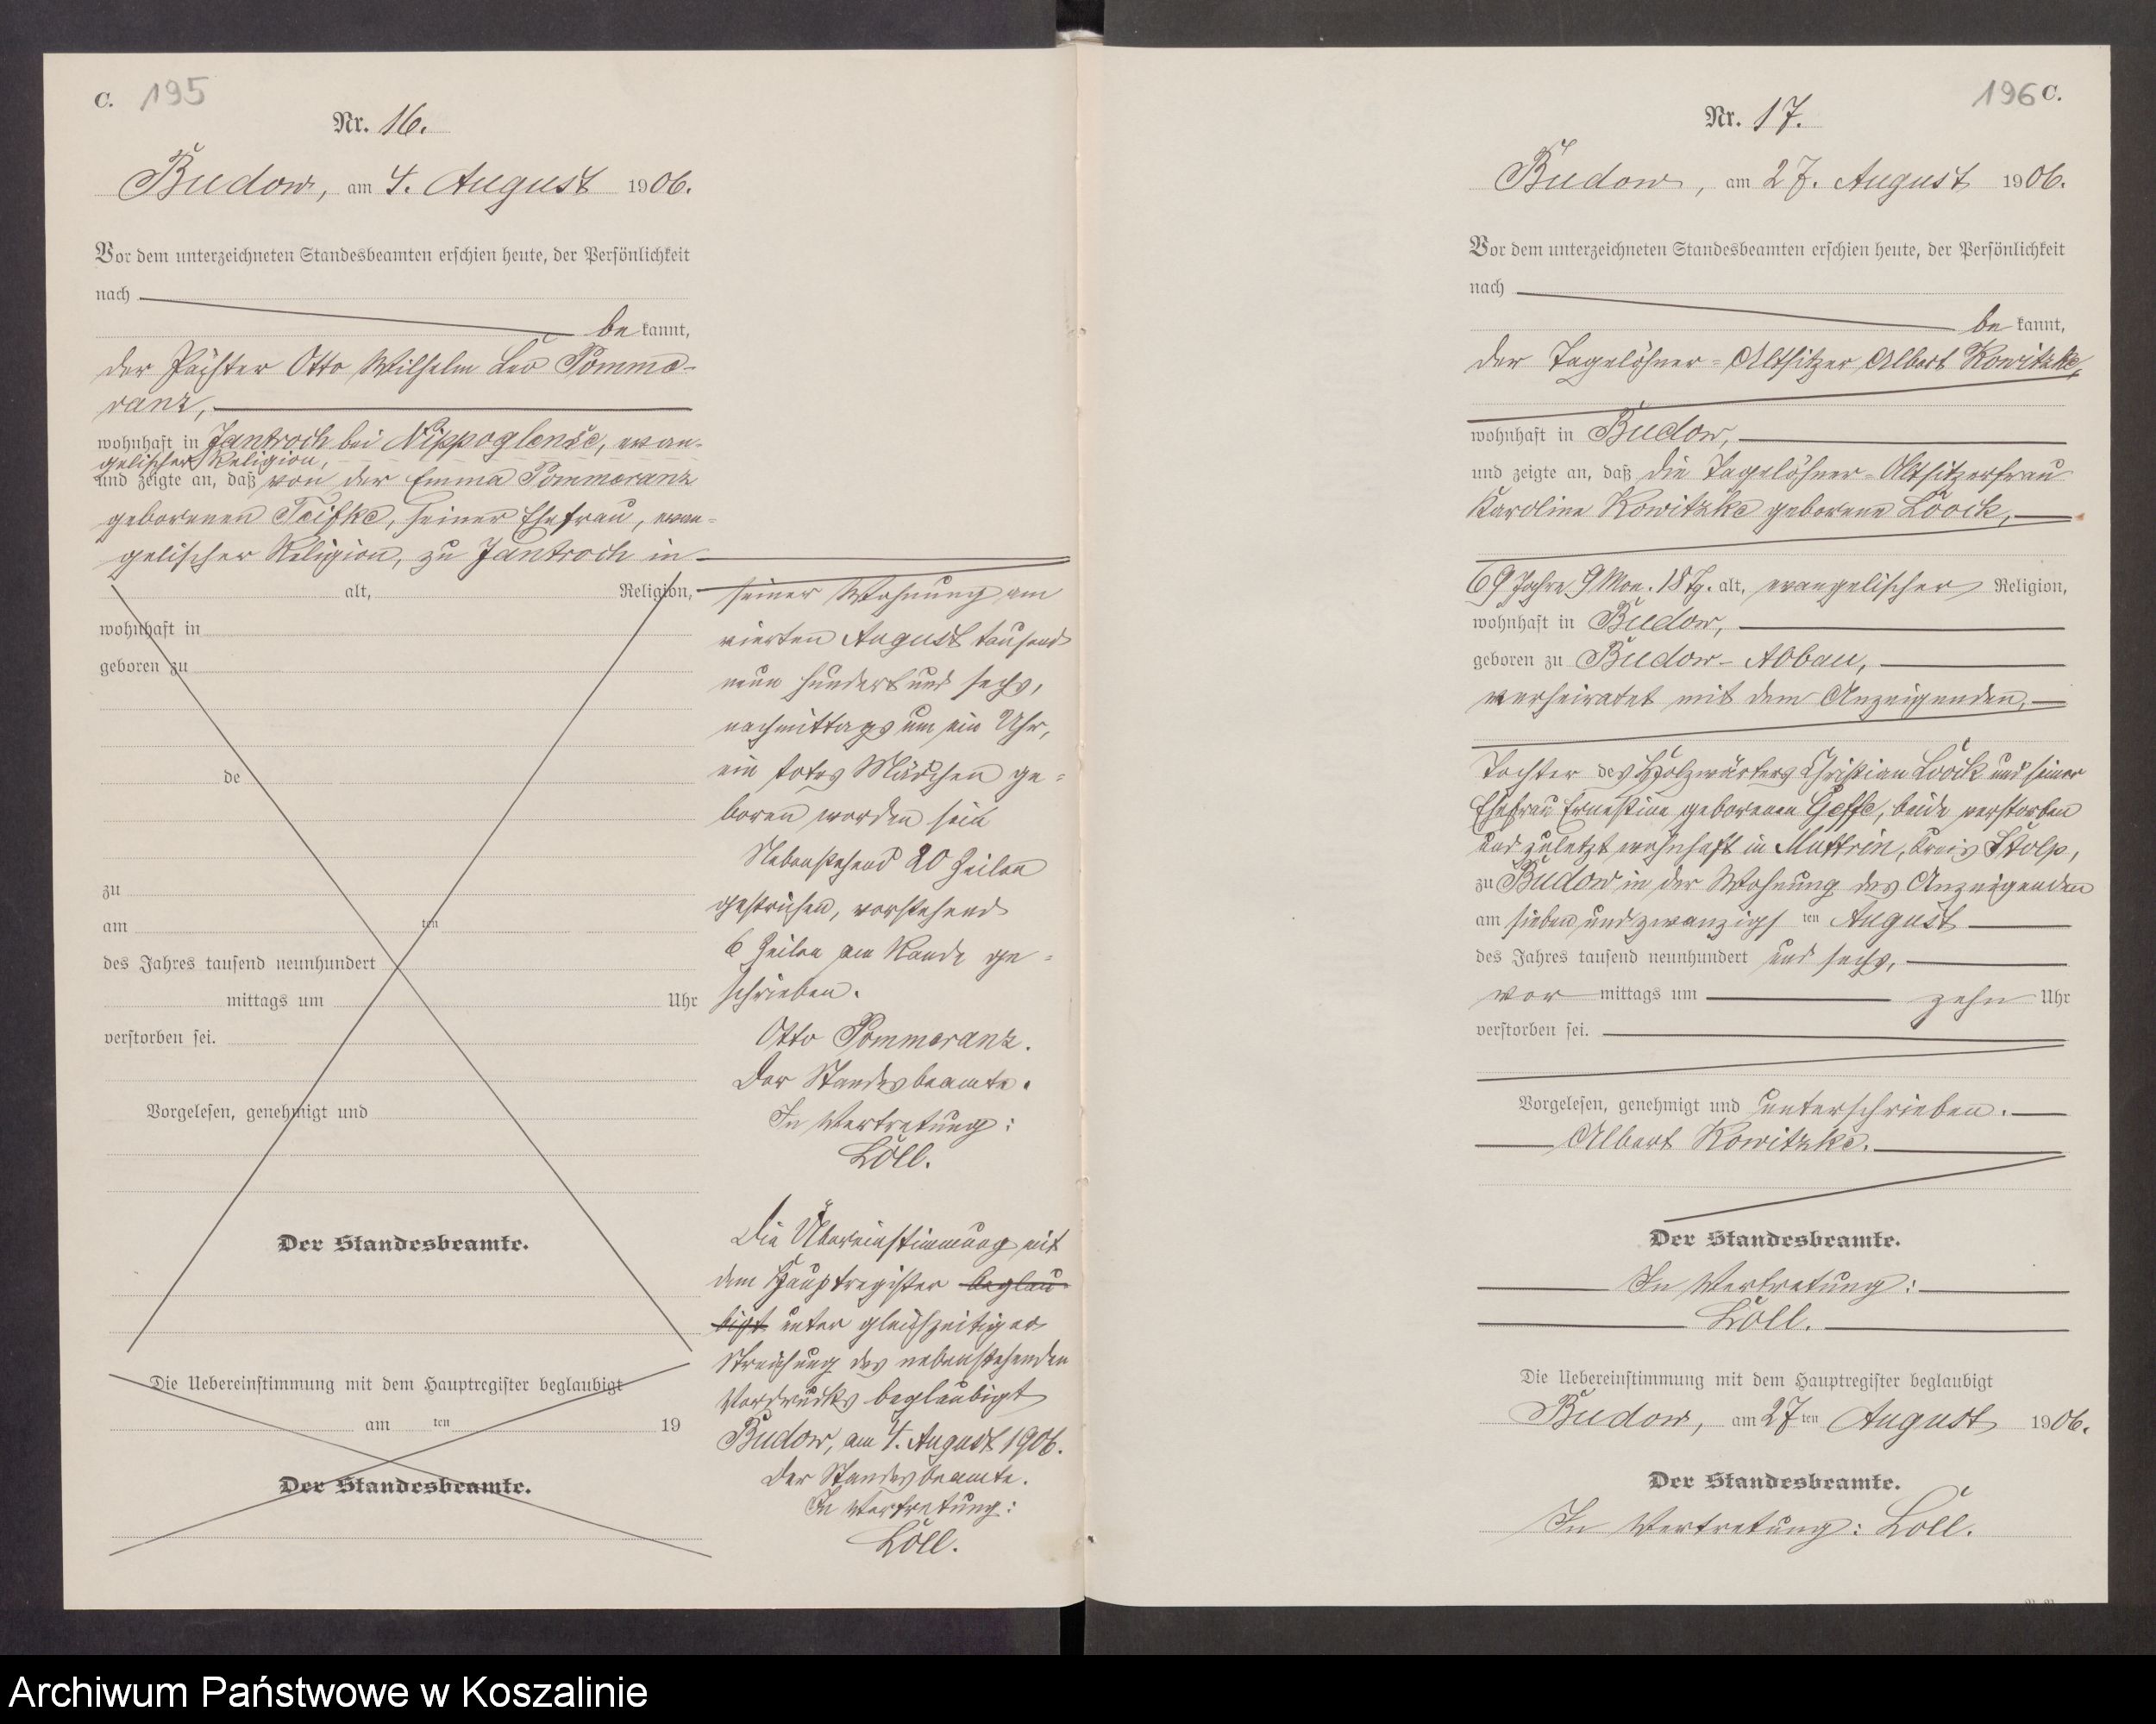 C. 195
Nr. 16.
Budow, am 4. August 1906.
Vor dem unterzeichneten Standesbeamten erschien heute, der Persönlichkeit
nach
be kannt,
der Pächter Otto Wilhelm Leo Pomme-
ranz,
wohnhaft in Jantroch bei Nippoglense, evan-
gelischer Religion,
und zeigte an, daß von der Emma Pommeranz
geborenen Teifke, seiner Ehefrau, evan-
gelischer Religion, zu Jantroch in
alt, Religion,
wohnhaft in
geboren zu
de
zu
am ten
des Jahres tausend neunhundert
mittags um Uhr
verstorben sei.
Vorgelesen, genehmigt und
Der Standesbeamte.
Die Uebereinstimmung mit dem Hauptregister beglaubigt
am ten 19
Der Standesbeamte.
seiner Wohnung am
vierten August tausend
neun hundert und sechs,
nachmittags um ein Uhr,
ein totes Mädchen ge-
boren worden sei
Nebenstehend 20 Zeilen
gestrichen, vorstehend
6 Zeilen am Rande ge-
schrieben.
Otto Pommeranz.
Der Standesbeamte.
In Vertretung:
Löll.
Die Übereinstimmung mit
dem Hauptregister beglau-
bigt unter gleichzeitiger
Streichung des nebenstehenden
Vordrucks beglaubigt
Budow, am 4. August 1906.
Der Standesbeamte.
In Vertretung:
Löll.
196 C.
Nr. 17.
Budow, am 27. August 1906.
Vor dem unterzeichneten Standesbeamten erschien heute, der Persönlichkeit
nach
be kannt,
der Tagelöhner-Altsitzer Albert Kowitzke,
wohnhaft in Budow,
und zeigte an, daß die Tagelöhner-Altsitzerfrau
Karoline Kowitzke geborene Loock,
69 Jahre, 9 Mon. 18 Tg. alt, evangelischer Religion,
wohnhaft in Budow,
geboren zu Budow-Abbau,
verheiratet mit dem Anzeigenden,
Tochter des Holzwärters Christian Loock und seiner
Ehefrau Ernestine geborenen Geffe, beide verstorben
und zuletzt wohnhaft in Muttrin, Kreis Stolp,
zu Budow in der Wohnung des Anzeigenden
am sieben und zwanzigs ten August
des Jahres tausend neunhundert und sechs,
vor mittags um zehn Uhr
verstorben sei.
Vorgelesen, genehmigt und unterschrieben.
Albert Kowitzke.
Der Standesbeamte.
In Vertretung:
Löll.
Die Uebereinstimmung mit dem Hauptregister beglaubigt
Budow, am 27 ten August 1906.
Der Standesbeamte.
In Vertretung: Löll.
Archiwum Państwowe w Koszalinie